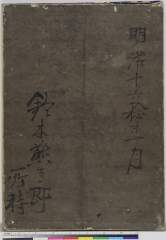 明治十六年十一月
鈴木熊三郎
所持